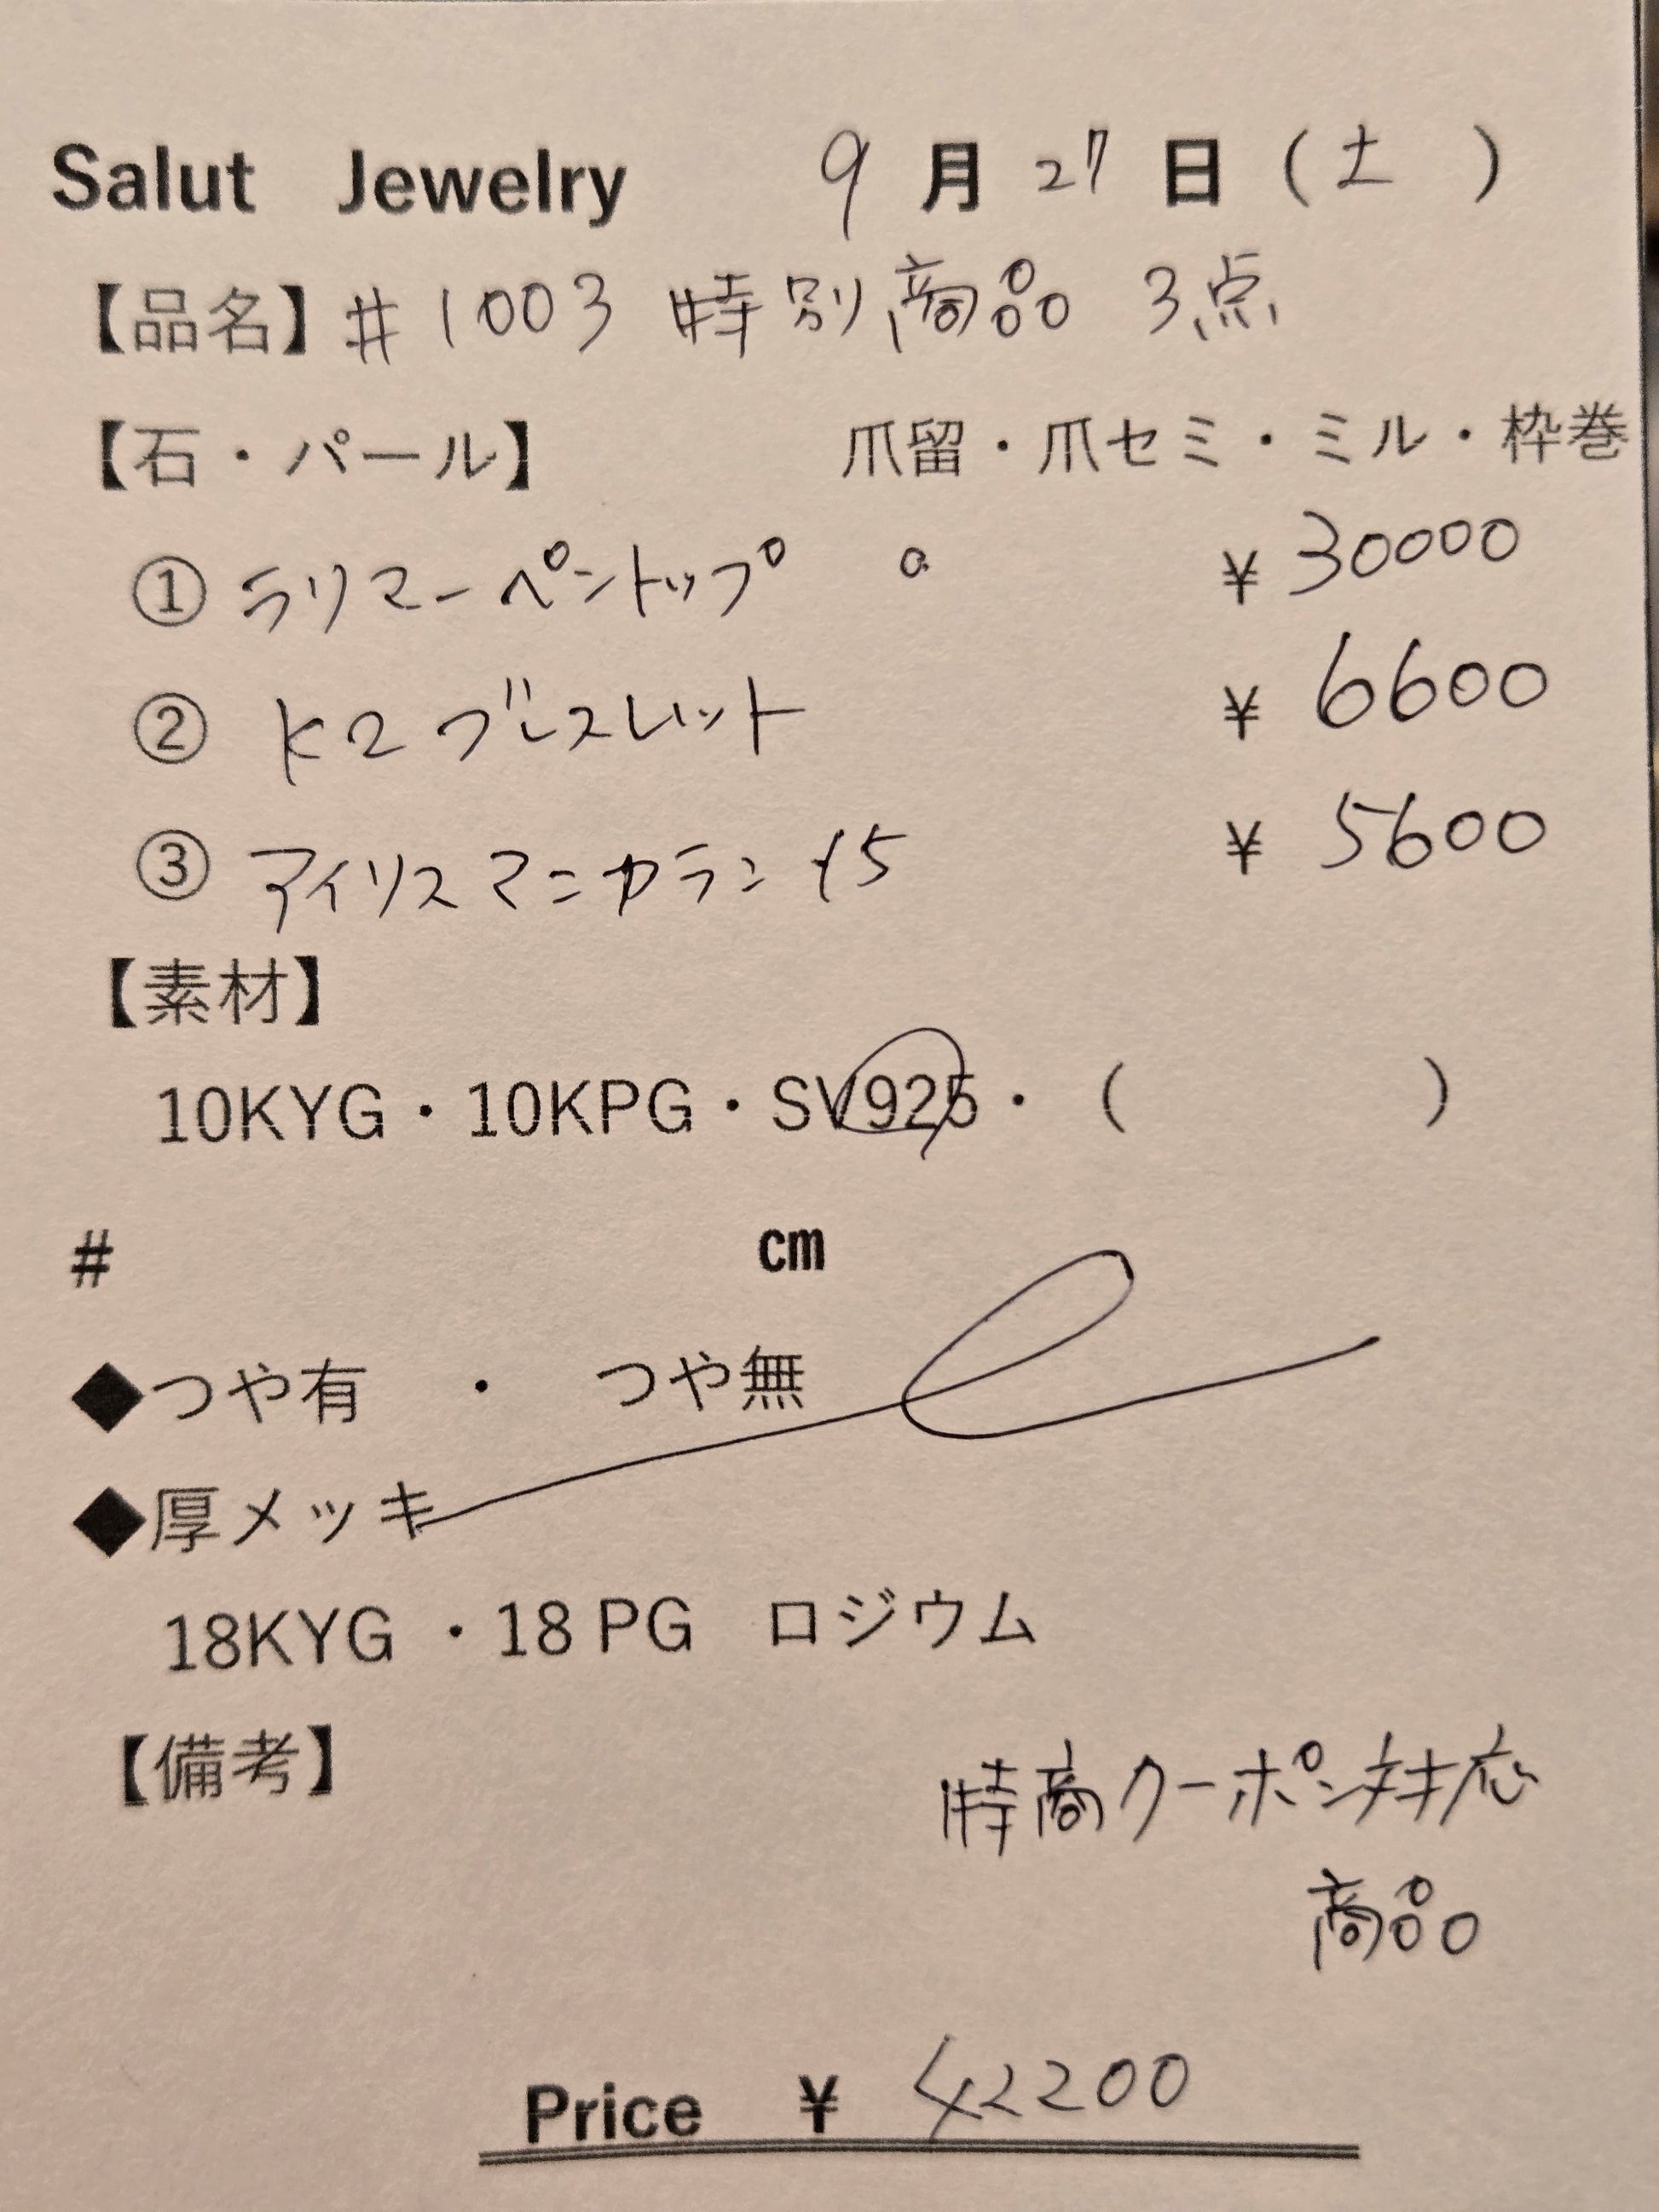 Salut Jewelry 9月27日(土 )
【品名】#1003 特別商品 3点
【石・パール】 爪留・爪セミ・ミル・枠巻
① ラリマーペントップ ¥30000
② K2ブレスレット ¥6600
③ アイリスマニカラン 15 ¥5600
【素材】
10KYG・10KPG・SV925・( )
# cm
◆つや有 ・ つや無
◆厚メッキ
18KYG ・18 PG ロジウム
【備考】
特商クーポン対応
商品
Price ¥ 42200